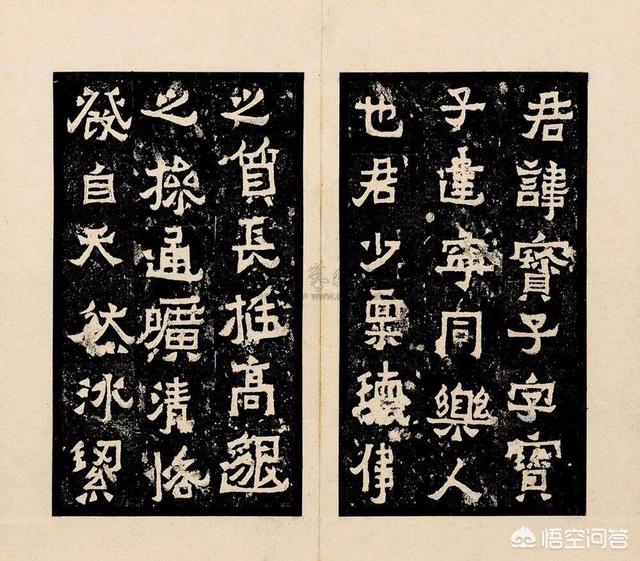 君諱寶子字寶
子建寧同樂人
也君少稟瓌偉
之質長挺高邈
之操通曠清恪
發自天然冰絜
悟空问答